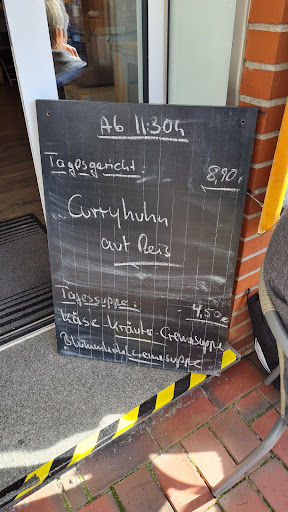 Ab 11:30h
Tagesgericht: 8,90
Curryhuhn
auf Reis
Tagessuppe: 4,50€
Käse-Kräuter-Cremesuppe
Blumenkohlcremesuppe